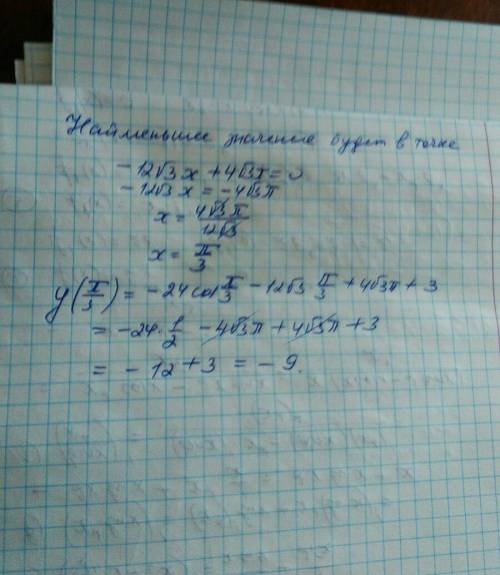 Найменьшее значение будет в точке
-12√3x + 4√3π = 0
-12√3x = -4√3π
x = 4√3π/12√3
x = π/3
y(π/3) = -24cos π/3 - 12√3 π/3 + 4√3π + 3
= -24·1/2 - 4√3π + 4√3π + 3
= -12 + 3 = -9.